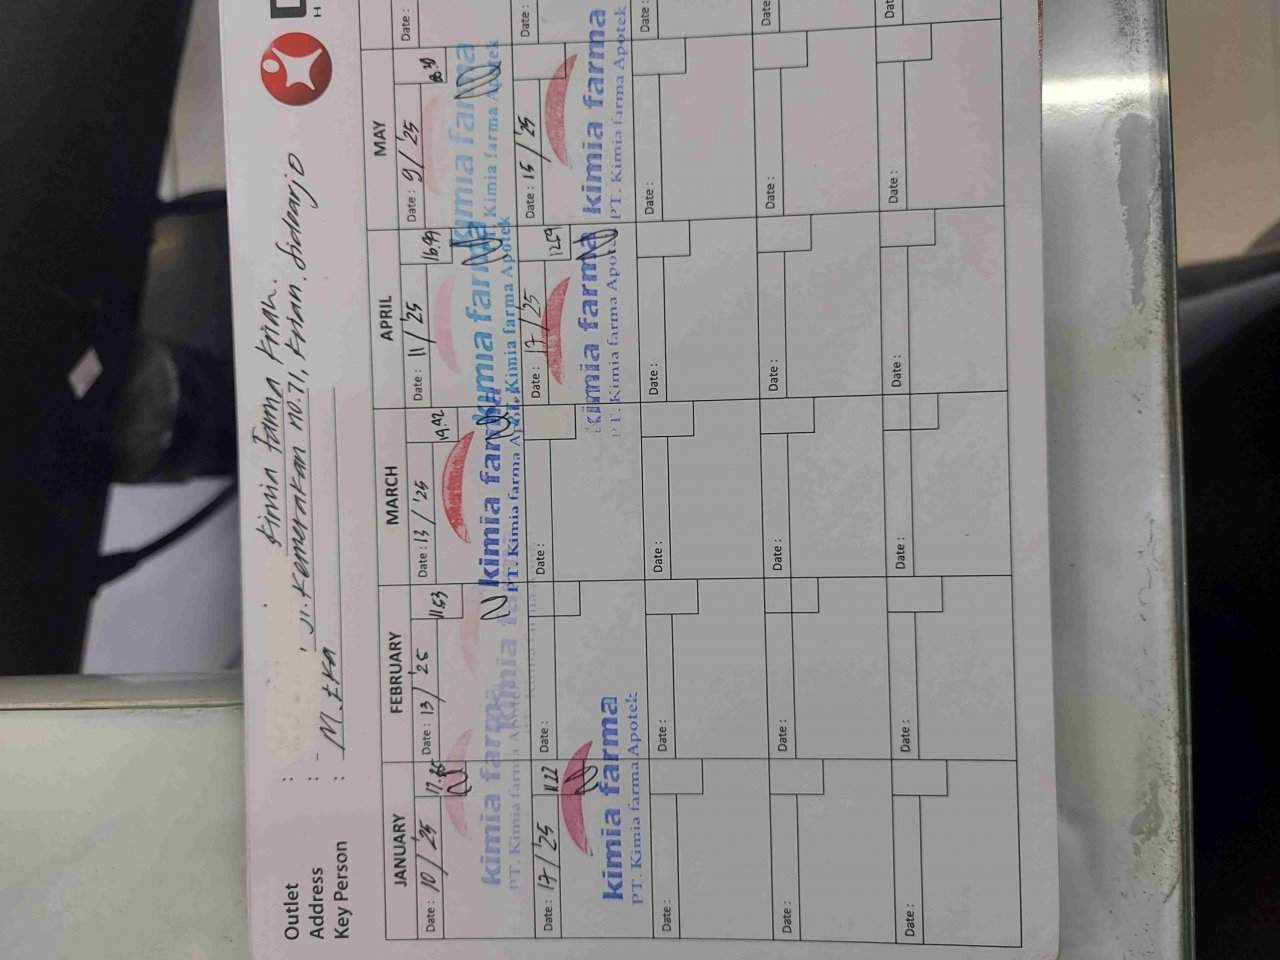 Outlet : Kimia Farma Krian.
Address : Jl. Kemerakan no.71, Krian. Sidoarjo
Key Person : M. Eka
JANUARY FEBRUARY MARCH APRIL MAY
Date : 10 / '25 Date : 13 / '25 11.53 Date : 13 / '25 19.42 Date : 11 / '25 16.49 Date : 9 / '25 Date :
kimia farma kimia farma kimia farma kimia farma kimia farma
PT. Kimia farma Apotek PT. Kimia farma PT. Kimia farma Apotek PT. Kimia farma Apotek Kimia farma Apotek
Date : 17 / '25 11.22 Date : Date : Date : 17 / '25 12.59 Date : 15 / '25 Date :
kimia farma kimia farma kimia farma
PT. Kimia farma Apotek PT. Kimia farma Apotek PT. Kimia farma Apotek
Date : Date : Date : Date : Date : Date :
Date : Date : Date : Date : Date : Date :
Date : Date : Date : Date : Date : Date :